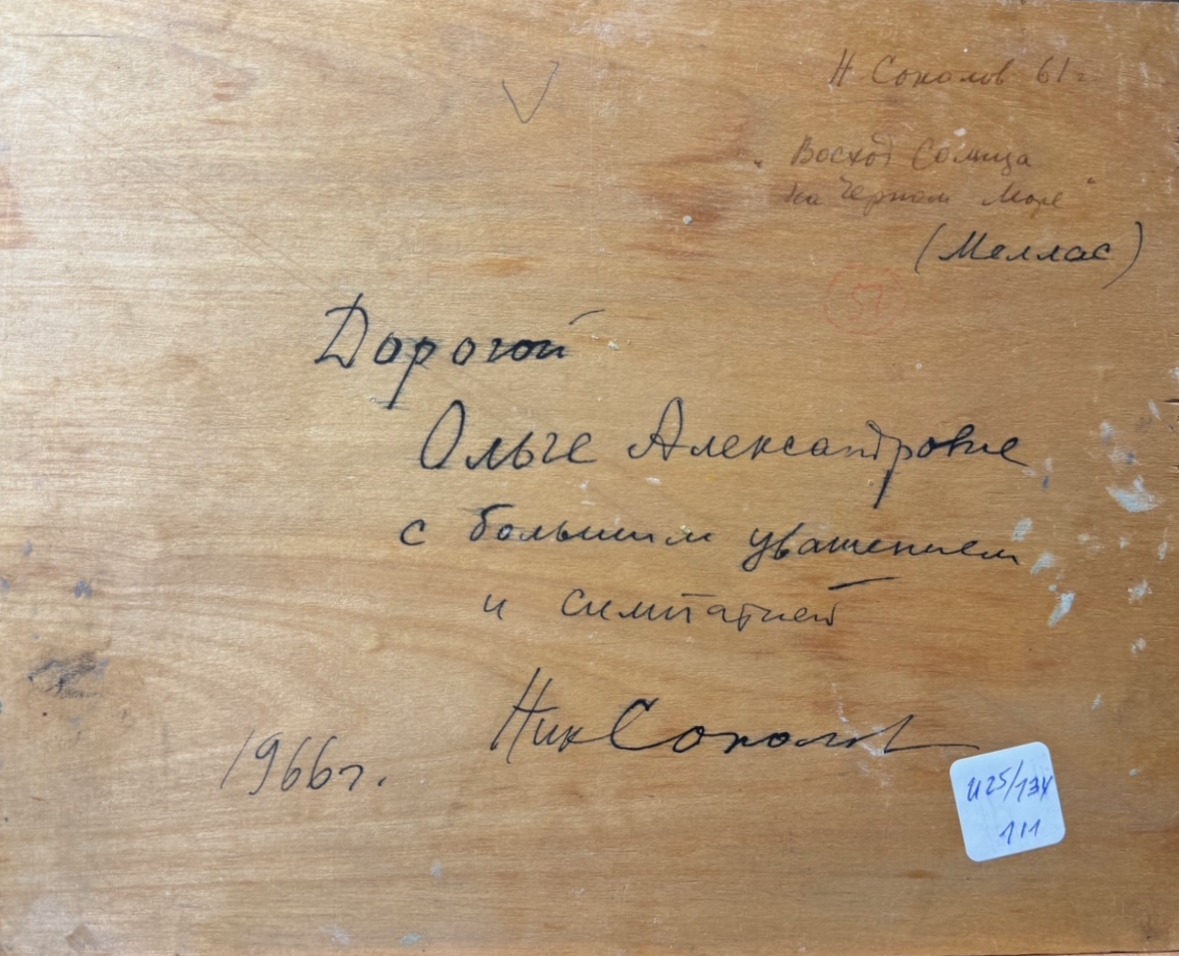 Н Соколов 61г
"Восход Солнца
на Черном Море"
(Меллас)
51
Дорогой
Ольге Александровне
с большим уважением
и симпатией
Ник Соколов
1966г.
И25/134
111